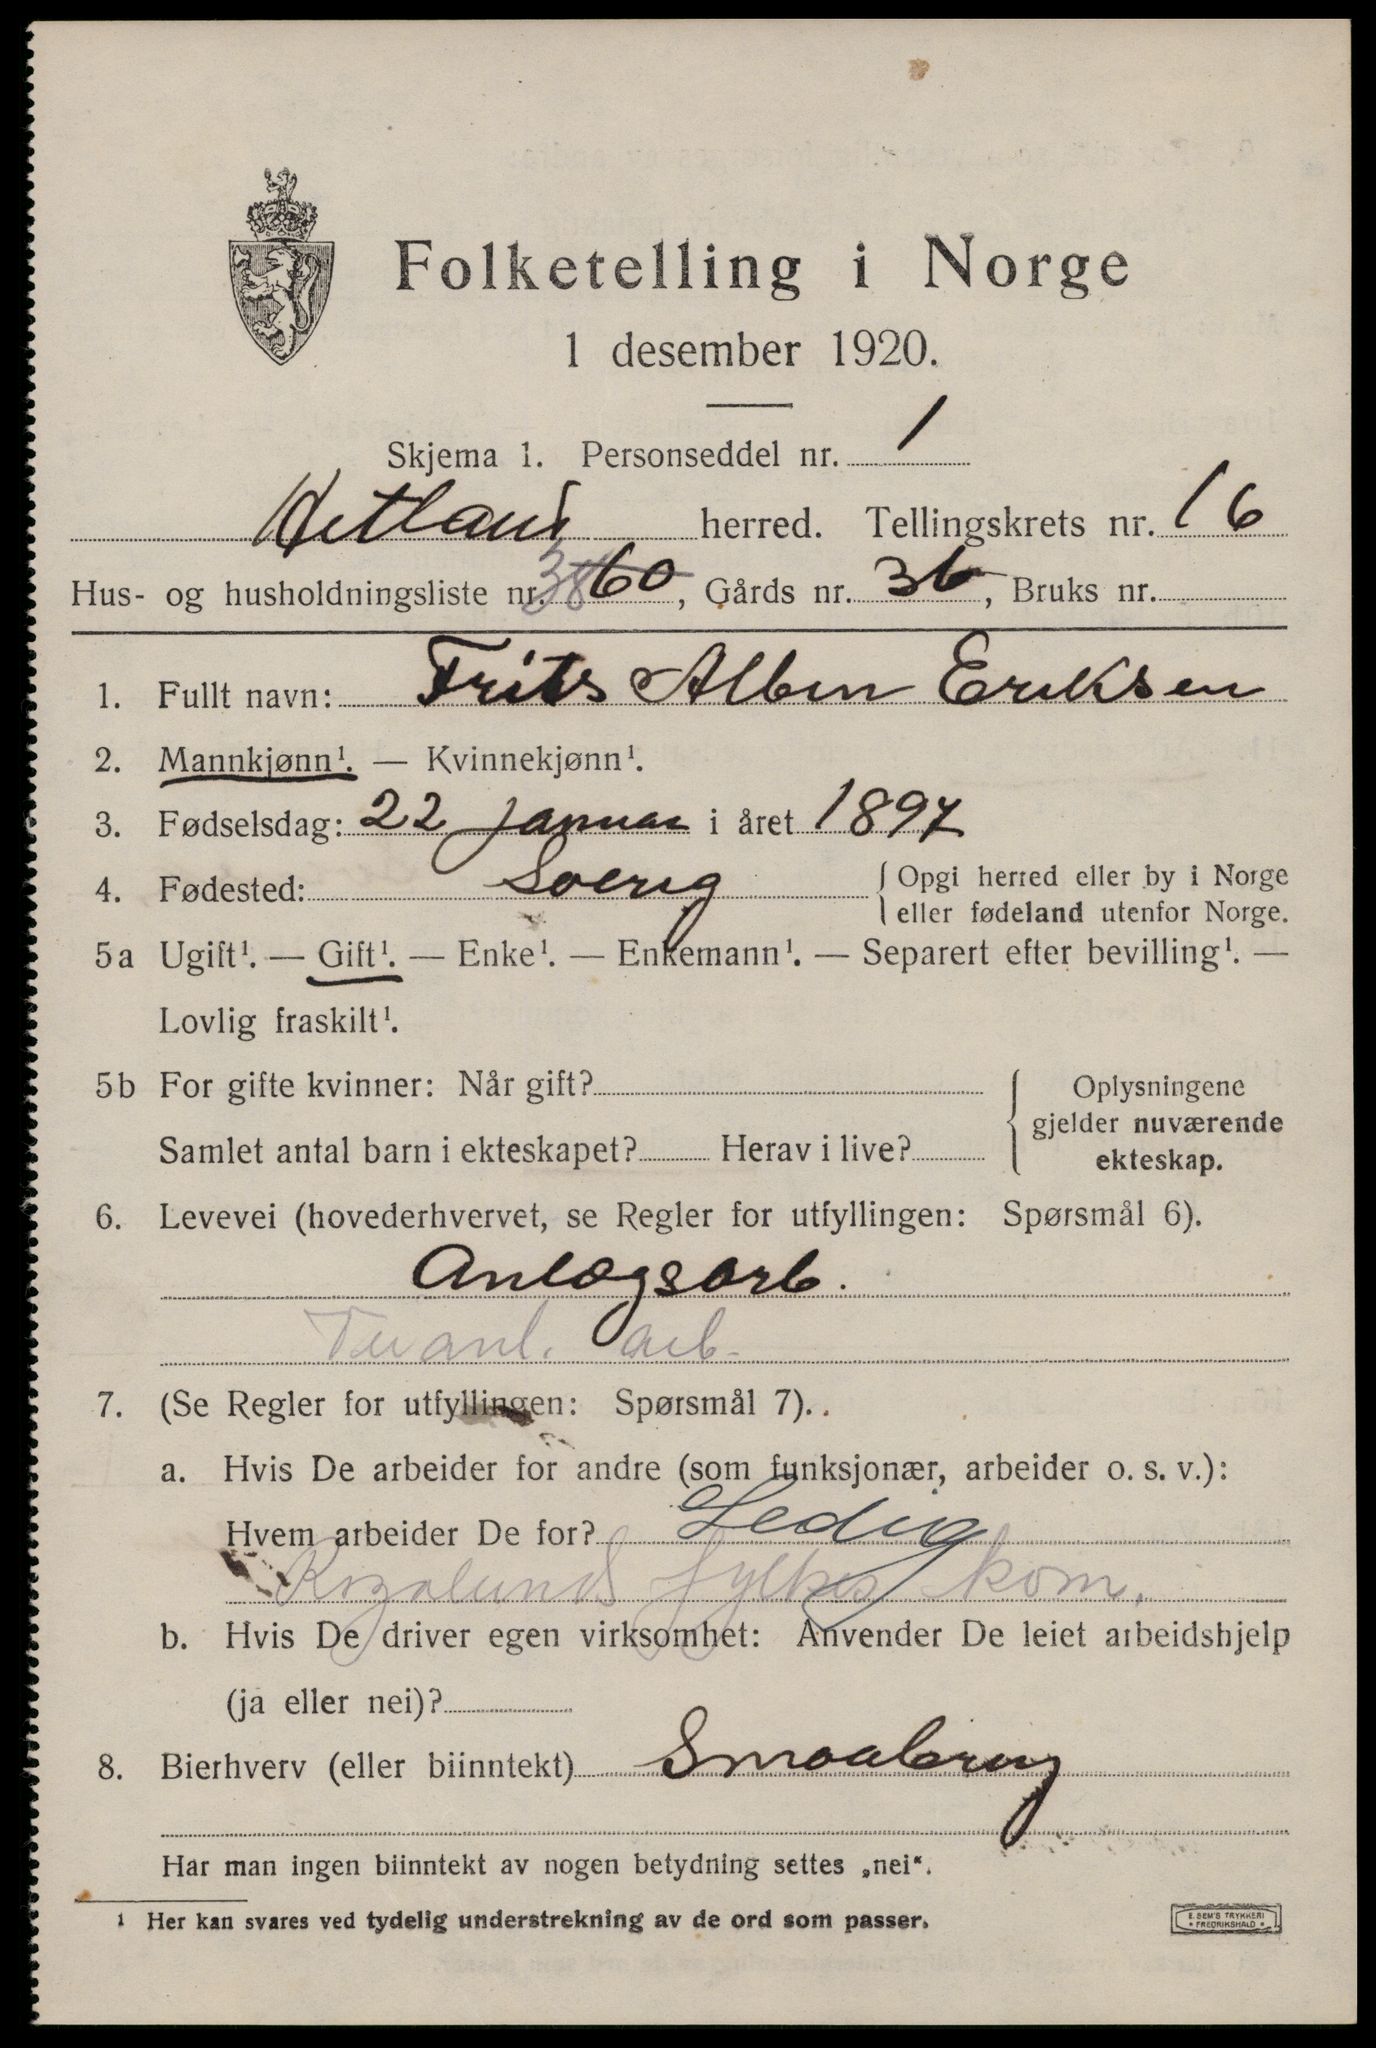 Folketelling i Norge
1 desember 1920.
Skjema 1. Personseddel nr. 1
Hetland herred. Tellingskrets nr. 16
Hus- og husholdningsliste nr. 38 60, Gårds nr. 36, Bruks nr.
1. Fullt navn: Frits Albin Eriksen
2. Mannkjønn¹. — Kvinnekjønn¹.
3. Fødselsdag: 22 januar i året 1897
4. Fødested: Sverig { Opgi herred eller by i Norge
eller fødeland utenfor Norge.
5a Ugift¹. — Gift¹. — Enke¹. — Enkemann¹. — Separert efter bevilling¹. —
Lovlig fraskilt¹.
5b For gifte kvinner: Når gift? { Oplysningene
gjelder nuværende
Samlet antal barn i ekteskapet? Herav i live? ekteskap.
6. Levevei (hovederhvervet, se Regler for utfyllingen: Spørsmål 6).
Anlægsarb.
arb.
7. (Se Regler for utfyllingen: Spørsmål 7)..
a. Hvis De arbeider for andre (som funksjonær, arbeider o. s. v.):
Hvem arbeider De for? Ledig
Rogalands fylkes kom.
b. Hvis De driver egen virksomhet: Anvender De leiet arbeidshjelp
(ja eller nei)?
8. Bierhverv (eller biinntekt) Smaabrug
Har man ingen biinntekt av nogen betydning settes „nei".
¹ Her kan svares ved tydelig understrekning av de ord som passer.
E. SEM'S TRYKKERI
* FREDRIKSHALD *